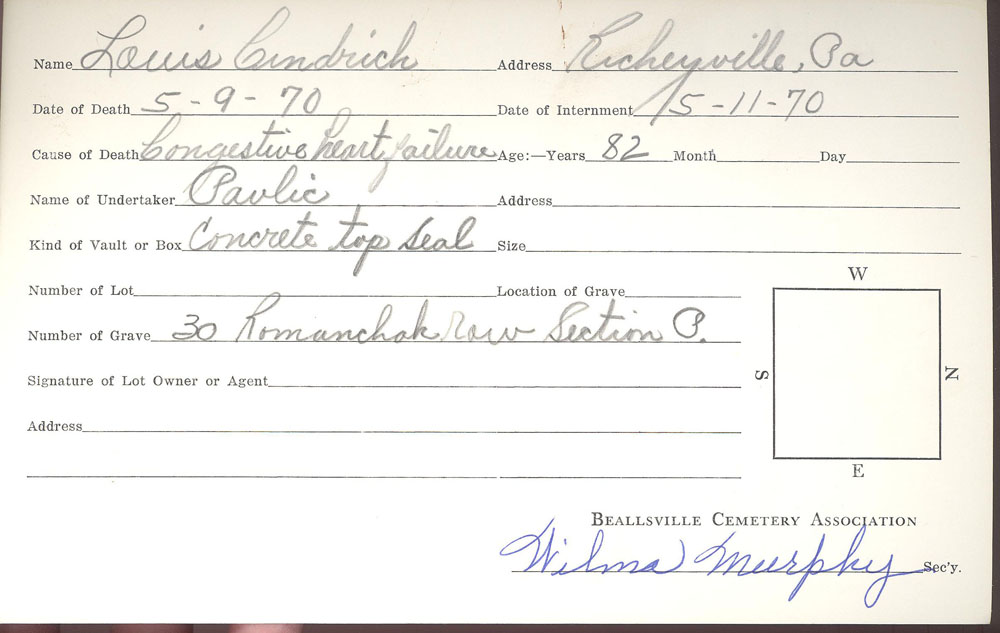 Name Louis Cindrich Address Richeyville, Pa
Date of Death 5-9-70 Date of Internment 5-11-70
Cause of Death Congestive heart failure Age:—Years 82 Month Day
Name of Undertaker Pavlic Address
Kind of Vault or Box Concrete top Seal Size
Number of Lot Location of Grave
W
Number of Grave 30 Romanchak row Section P.
Signature of Lot Owner or Agent
S N
Address
E
BEALLSVILLE CEMETERY ASSOCIATION
Wilma Murphy Sec'y.